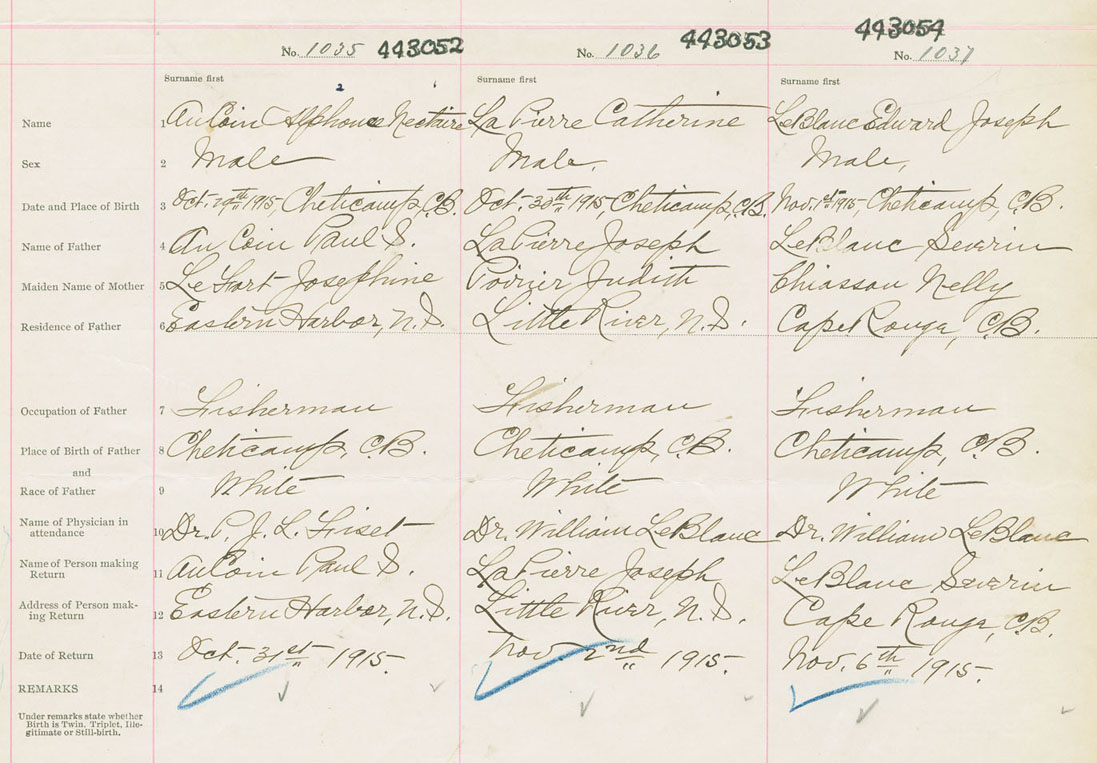 443054
No. 1035 443052 No. 1036 443053 No. 1037
Surname first Surname first Surname first
2 1
Name 1 AuCoin Alphonse Nectaire LaPierre Catherine LeBlanc Edward Joseph
Sex 2 Male Male. Male,
Date and Place of Birth 3 Oct. 29th 1915, Cheticamp, C.B. Oct. 30th 1915, Cheticamp, C.B. Nov. 1st 1915, Cheticamp, C.B.
Name of Father 4 AuCoin Paul S. LaPierre Joseph LeBlanc Severin
Maiden Name of Mother 5 LeFort Josephine Poirier Judith Chiasson Nelly
Residence of Father 6 Eastern Harbor, N.S. Little River, N.S. Cape Rouge, C.B.
Occupation of Father 7 Fisherman Fisherman Fisherman
Place of Birth of Father 8 Cheticamp, C.B. Cheticamp, C.B. Cheticamp, C.B.
and
Race of Father 9 White White White
Name of Physician in
attendance 10 Dr. P. J. L. Fiset Dr. William LeBlanc Dr. William LeBlanc
Name of Person making
Return 11 AuCoin Paul S. LaPierre Joseph LeBlanc Severin
Address of Person mak-
ing Return 12 Eastern Harbor, N.S. Little River, N.S. Cape Rouge, C.B.
Date of Return 13 Oct. 31st 1915 Nov. 2nd 1915. Nov. 6th 1915.
REMARKS 14
Under remarks state whether
Birth is Twin, Triplet, Ille-
gitimate or Still-birth.